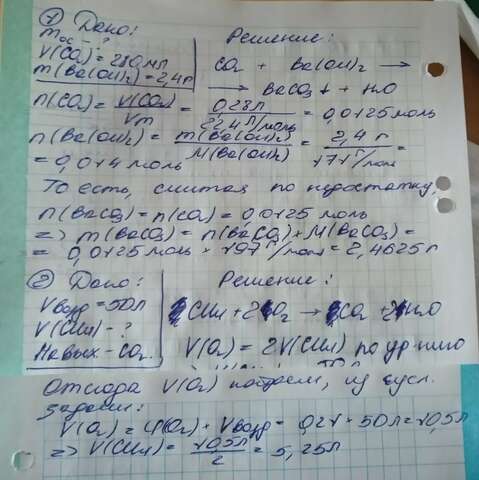 ① Дано:
mос - ?
V(CO₂) = 280 мл
m(Ba(OH)₂) = 2,4 г
Решение:
CO₂ + Ba(OH)₂ →
→ BaCO₃↓ + H₂O
n(CO₂) = V(CO₂)/Vm = 0,28 л/22,4 л/моль = 0,0125 моль
n(Ba(OH)₂) = m(Ba(OH)₂)/M(Ba(OH)₂) = 2,4 г/171 г/моль =
= 0,014 моль
То есть, считая по недостатку,
n(BaCO₃) = n(CO₂) = 0,0125 моль
=> m(BaCO₃) = n(BaCO₃) · M(BaCO₃) =
= 0,0125 моль · 197 г/моль = 2,4625 г
② Дано:
Vвозд = 50 л
V(CH₄) - ?
Решение:
CH₄ + 2O₂ → CO₂ + 2H₂O
V(O₂) = 2V(CH₄) по ур-нию
Отсюда V(O₂) найдем, из усл.
задачи:
V(O₂) = φ(O₂) · Vвозд = 0,21 · 50 л = 10,5 л
=> V(CH₄) = 10,5 л/2 = 5,25 л